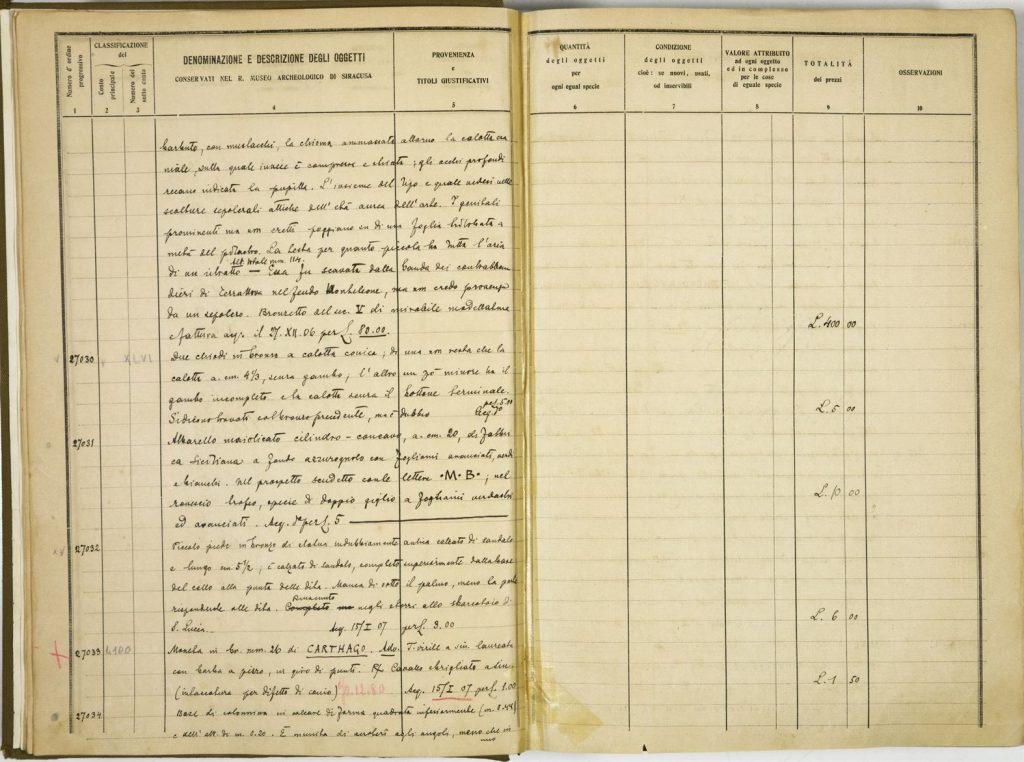 Numero d'ordine progressivo
CLASSIFICAZIONE del
Conto principale
Numero del sotto conto
DENOMINAZIONE E DESCRIZIONE DEGLI OGGETTI
CONSERVATI NEL R. MUSEO ARCHEOLOGICO DI SIRACUSA
PROVENIENZA
e
TITOLI GIUSTIFICATIVI
QUANTITÀ
degli oggetti
per
ogni egual specie
CONDIZIONE
degli oggetti
cioè: se nuovi, usati,
od inservibili
VALORE ATTRIBUITO
ad ogni oggetto
ed in complesso
per le cose
di eguale specie
TOTALITÀ
dei prezzi
OSSERVAZIONI
1 2 3 4 5 6 7 8 9 10
barbuto, con mustacchi, la chioma ammassata attorno la calotta cra
niale, sulla quale invece è compressa e striata; gli occhi profondi
recano indicata la pupilla. L'insieme del tipo e quale vedesi nelle
scolture sepolcrali attiche dell'età aurea dell'arte. I genitali
prominenti ma non eretti poggiano su di una foglia trilobata a
metà del pilastro. La testa per quanto piccola ha tutta l'aria
alt. totale mm. 114.
di un ritratto — Essa fu scavata dalla banda dei contrabban
dieri di Terranova nel feudo Monteleone, ma non credo provenga
da un sepolcro. Bronzetto del sec. V di mirabile modellatura
e fattura acq. il 27. XII. 06 per £. 80.00. L. 400 00
27030 XLVI Due chiodi in bronzo a calotta conica; di uno non resta che la
calotta a. cm. 4 1/3, senza gambo; l'altro un pò minore ha il
gambo incompleto e la calotta senza il bottone terminale.
per £. 5.00
Si dicono trovati col bronzo precedente, ma è dubbio Acq. L. 5 00
27031 Albarello maiolicato cilindro-concavo, a. cm. 20, di fabbri
ca Siciliana a fondo azzurognolo con fogliami aranciati, verdi
e bianchi. Nel prospetto scudetto con le lettere •M•B•; nel
rovescio trofeo, specie di doppio giglio a fogliami verdastri
ed aranciati. Acq. per £. 5 L. 10 00
27032 Piccolo piede in bronzo di statua indubbiamente antica calzato di sandalo
e lungo cm. 5 1/2; è calzato di sandalo, completo superiormente dalla base
del collo alla punta delle dita. Manca di sotto il palmo, meno la parte
Rinvenuto
rispondente alle dita. negli sterri allo sbarcatoio di
S. Lucia. Acq. 15/I 07 per £. 3.00 L. 6 00
27033 4100 Moneta in bo. mm. 26 di CARTHAGO. Adv. T. virile a sin. laureata
con barba a pizzo, in giro di punti. Rv. Cavallo sbrigliato a sin.
(intaccatura per difetto di conio) 12.80 Acq. 15/I 07 per £. 1.00 L. 1 50
27034 Base di colonnina in calcare di forma quadrata inferiormente
e dell'alt. di m. 0.20. È munita di agli angoli, meno che in
uno